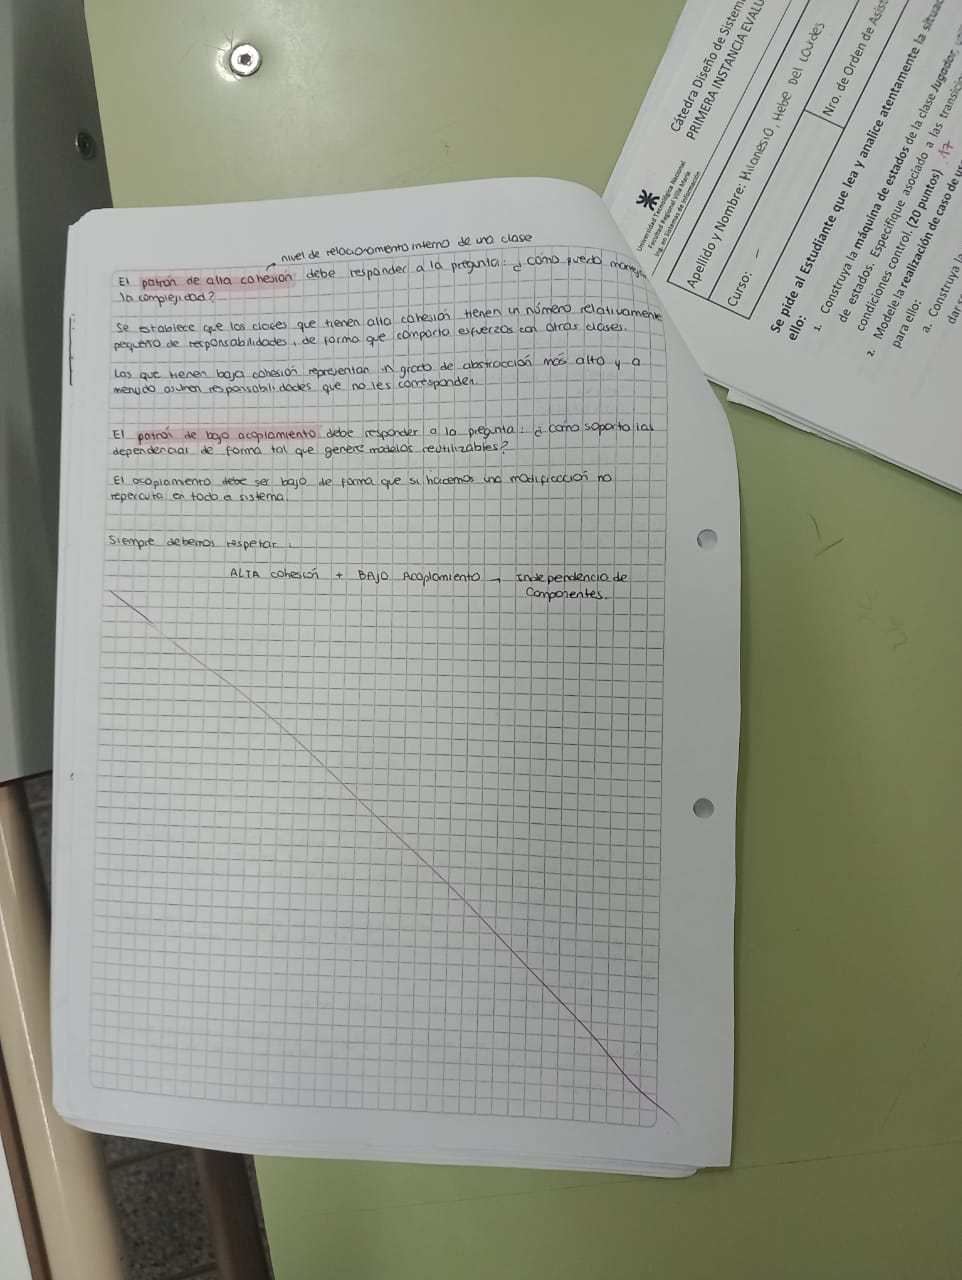 nivel de relacionamiento interno de una clase
El patrón de alta cohesión debe responder a la pregunta: ¿cómo puedo manejar
la complejidad?
Se establece que las clases que tienen alta cohesión tienen un número relativamente
pequeño de responsabilidades, de forma que comparta esfuerzos con otras clases.
Las que tienen baja cohesión representan un grado de abstracción más alto y a
menudo asumen responsabilidades que no les corresponden.
El patrón de bajo acoplamiento debe responder a la pregunta: ¿cómo soporto las
dependencias de forma tal que genere modelos reutilizables?
El acoplamiento debe ser bajo de forma que si hacemos una modificación no
repercuta en todo el sistema.
Siempre debemos respetar:
ALTA cohesión + BAJO Acoplamiento → Independencia de
Componentes.
Universidad Tecnológica Nacional
Facultad Regional Villa María
Ing. en Sistemas de Información
Cátedra Diseño de Sistem
PRIMERA INSTANCIA EVALU
Apellido y Nombre: Milanesio, Hebe Del Lourdes
Curso: -
Nro. de Orden de Asist
Se pide al Estudiante que lea y analice atentamente la situac
ello:
1. Construya la máquina de estados de la clase Jugador,
de estados. Especifique asociado a las transici
condiciones control. (20 puntos) 17
2. Modele la realización de caso de us
para ello:
a. Construya